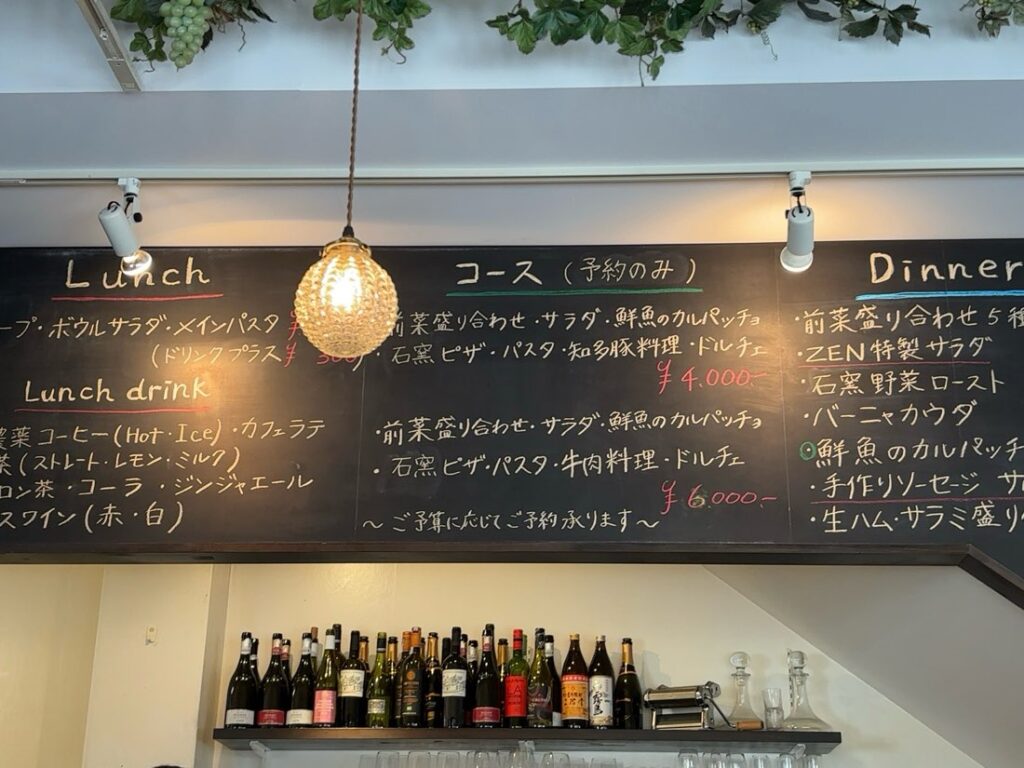 Lunch
ープ・ボウルサラダ・メインパスタ ¥
(ドリンクプラス ¥ 300)
Lunch drink
農薬コーヒー(Hot・Ice)・カフェラテ
茶(ストレート・レモン・ミルク)
ロン茶・コーラ・ジンジャエール
スワイン(赤・白)
コース (予約のみ)
前菜盛り合わせ・サラダ・鮮魚のカルパッチョ
・石窯ピザ・パスタ・知多豚料理・ドルチェ
¥4.000-
・前菜盛り合わせ・サラダ・鮮魚のカルパッチョ
・石窯ピザ・パスタ・牛肉料理・ドルチェ
¥6.000-
〜ご予算に応じてご予約承ります〜
Dinner
・前菜盛り合わせ5種
・ZEN特製サラダ
・石窯野菜ロースト
・バーニャカウダ
鮮魚のカルパッチ
・手作りソーセージ サ
・生ハム・サラミ盛り